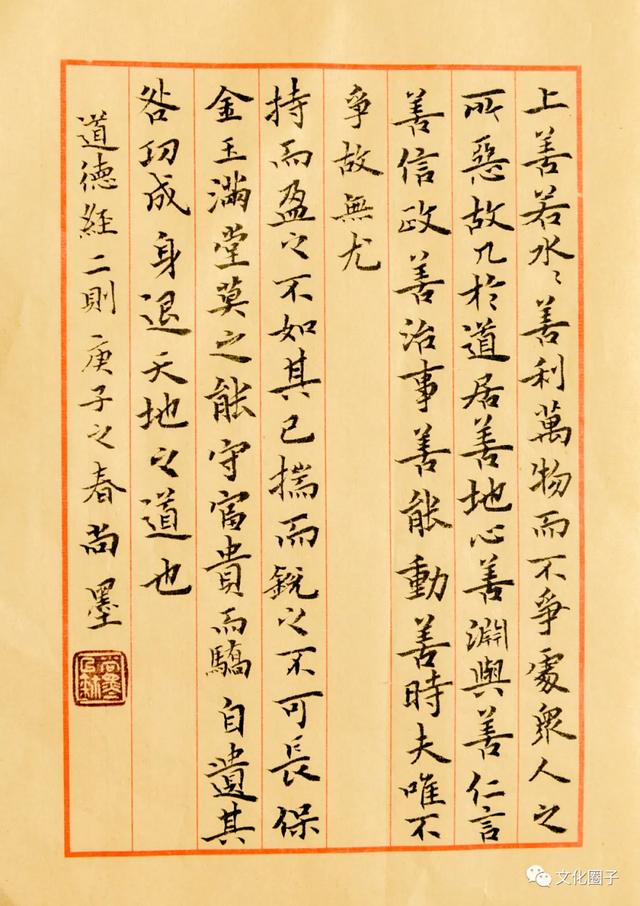 上善若水〻善利萬物而不爭處衆人之
所惡故几於道居善地心善淵與善仁言
善信政善治事善能動善時夫唯不
爭故無尤
持而盈之不如其已揣而銳之不可長保
金玉滿堂莫之能守富貴而驕自遺其
咎功成身退天地之道也
道德經二則 庚子之春尚墨
文化圈子